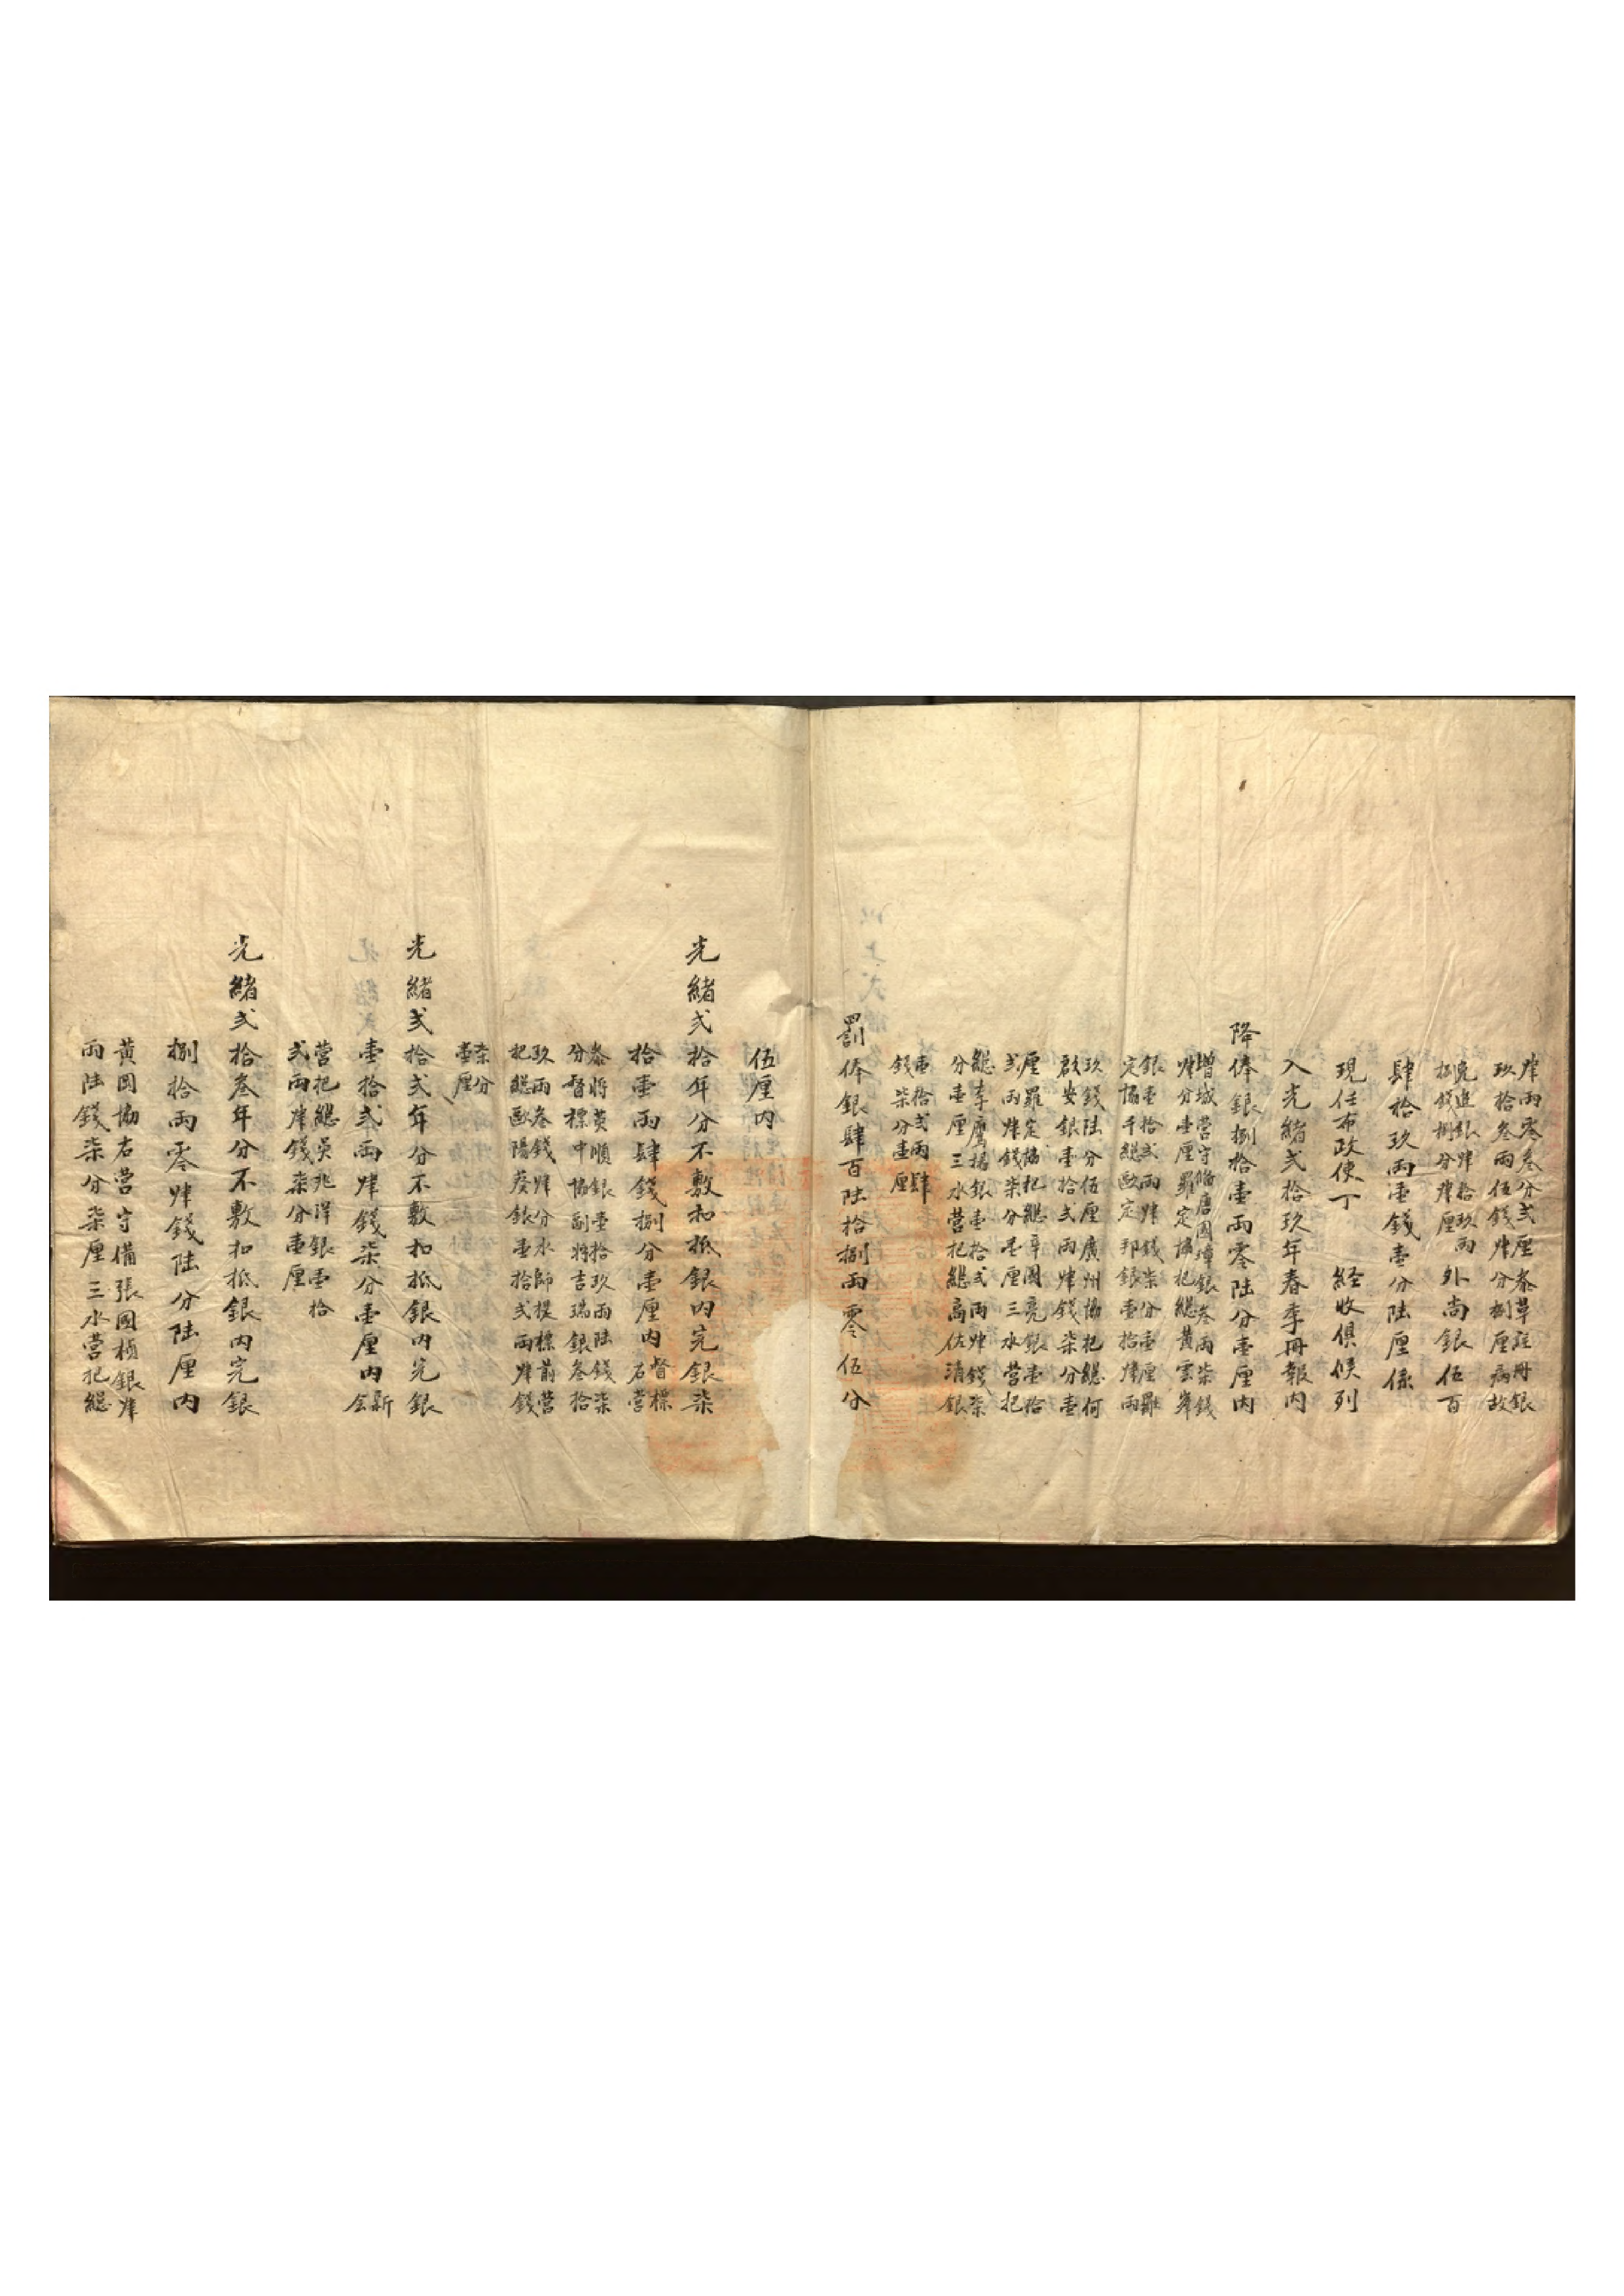 肆兩零叁分弍厘叅革註册銀
玖拾叁兩伍錢肆分捌厘病故
免進銀肆拾玖兩
捌錢捌分肆厘
外尚銀伍百
肆拾玖兩壹錢壹分陸厘係
現任布政使丁 経收俱候列
入光緒弍拾玖年春季冊報内
降俸銀捌拾壹兩零陸分壹厘内
增城營守備唐國璋銀叁兩柒錢
肆分壹厘羅定協把總黃雲岸
銀壹拾弍兩肆錢柒分壹厘羅
定協千總歐定邦銀壹拾肆兩
玖錢陸分伍厘廣州協把總何
啟安銀壹拾弍兩肆錢柒分壹
厘羅定協把總章國亮銀壹拾
弍兩肆錢柒分壹厘三水營把
總李鷹揚銀壹拾弍兩肆錢柒
分壹厘三水營把總高佐清銀
壹拾弍兩肆
錢柒分壹厘
罰俸銀肆百陸拾捌兩零伍分
伍厘内
光緒弍拾年分不敷扣抵銀内完銀柒
拾壹兩肆錢捌分壹厘内
督標
右營
叅將黃順銀壹拾玖兩陸錢柒
分督標中協副將吉瑞銀叁拾
玖兩叁錢肆分水師提標前營
把總歐陽葵銀壹拾弍兩肆錢
柒分
壹厘
光緒弍拾弍年分不敷扣抵銀内完銀
壹拾弍兩肆錢柒分壹厘内
新
会
營把總吳兆祥銀壹拾
弍兩肆錢柒分壹厘
光緒弍拾叁年分不敷扣抵銀内完銀
捌拾兩零肆錢陸分陸厘内
黃岡協右營守備張國楨銀肆
兩陸錢柒分柒厘三水營把總